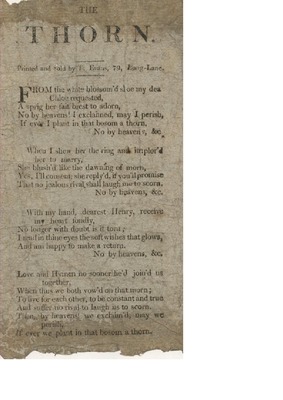 THE
THORN.
Printed and sold by T. Evans, 79, Long-Lane.
FROM the white blossom'd sloe my dea
Chloe requested,
A sprig her fair breast to adorn,
No by heavens! I exclaimed, may I perish,
If ever I plant in that bosom a thorn.
No by heavens, &c.
When I shew her the ring and implor'd
her to marry,
She blush'd like the dawning of morn,
Yes, I'll consent, she reply'd, if you'll promise
That no jealous rival shall laugh me to scorn.
No by heavens, &c.
With my hand, dearest Henry, receive
my heart fondly,
No longer with doubt is it torn;
I read in thine eyes the soft wishes that glows,
And am happy to make a return.
No by heavens, &c.
Love and Hymen no sooner he'd join'd us
together,
When thus we both vow'd on that morn;
To live for each other, to be constant and true
And suffer no rival to laugh us to scorn.
Then, by heavens! we exclaim'd, may we
perish,
If ever we plant in that bosom a thorn.